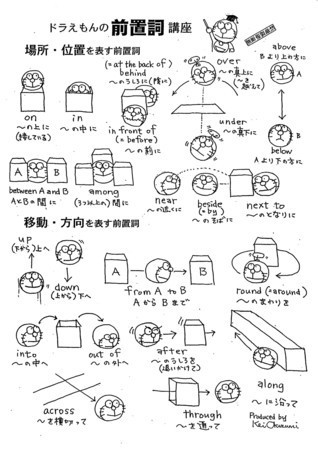 ドラえもんの前置詞講座
場所・位置を表す前置詞
on
〜の上に
(接している)
in
〜の中に
(= at the back of)
behind
〜のうしろに(陰に)
in front of
(= before)
〜の前に
over
〜の真上に
〜を越えて
under
〜の真下に
above
Bより上の方に
A
B
A
B
below
Aより下の方に
A
B
between A and B
AとBの間に
among
(3つ以上の)間に
near
〜の近くに
beside
(= by)
〜のそばに
next to
〜のとなりに
移動・方向を表す前置詞
up
(下から)上へ
down
(上から)下へ
A
B
from A to B
AからBまで
round (= around)
〜のまわりを
into
〜の中へ
out of
〜の外へ
after
〜のうしろを
(追いかけて)
along
〜に沿って
across
〜を横切って
through
〜を通って
Produced by
Kei Okuzumi